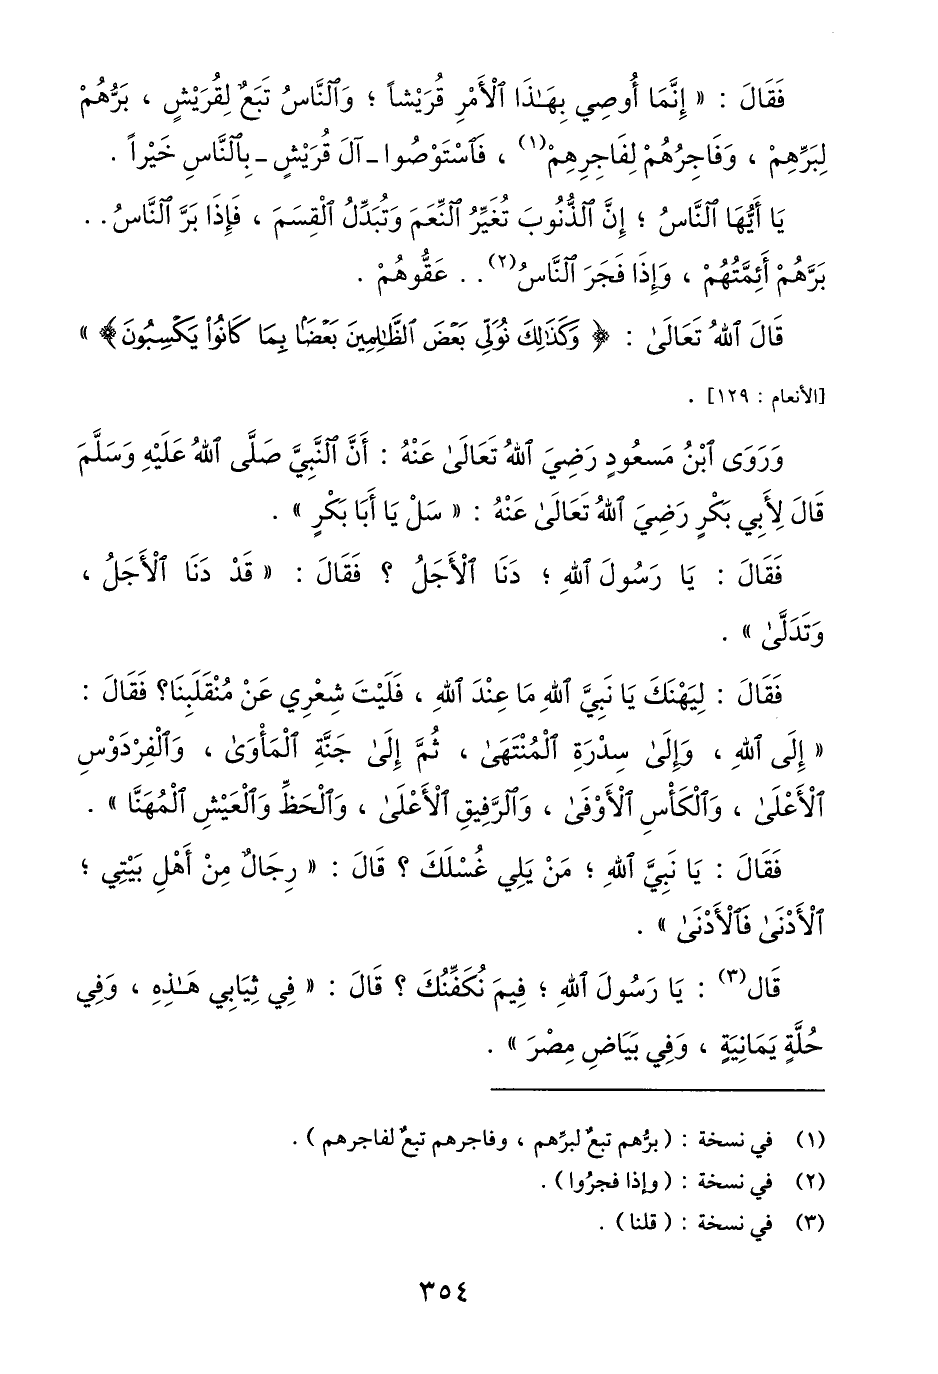 فَقَالَ : « إِنَّمَا أُوصِي بِهَـٰذَا ٱلْأَمْرِ قُرَيْشاً ؛ وَٱلنَّاسُ تَبَعٌ لِقُرَيْشٍ ، بَرُّهُمْ
لِبَرِّهِمْ ، وَفَاجِرُهُمْ لِفَاجِرِهِمْ(١) ، فَٱسْتَوْصُوا ـ آلَ قُرَيْشٍ ـ بِٱلنَّاسِ خَيْراً .
يَا أَيُّهَا ٱلنَّاسُ ؛ إِنَّ ٱلذُّنُوبَ تُغَيِّرُ ٱلنِّعَمَ وَتُبَدِّلُ ٱلْقِسَمَ ، فَإِذَا بَرَّ ٱلنَّاسُ . .
بَرَّهُمْ أَئِمَّتُهُمْ ، وَإِذَا فَجَرَ ٱلنَّاسُ(٢) . . عَقُّوهُمْ .
قَالَ ٱللهُ تَعَالَىٰ : ﴿ وَكَذَٰلِكَ نُوَلِّي بَعْضَ ٱلظَّٰلِمِينَ بَعْضًۢا بِمَا كَانُوا۟ يَكْسِبُونَ ﴾ »
[الأنعام : ١٢٩] .
وَرَوَى ٱبْنُ مَسعُودٍ رَضِيَ ٱللهُ تَعَالَىٰ عَنْهُ : أَنَّ ٱلنَّبِيَّ صَلَّى ٱللهُ عَلَيْهِ وَسَلَّمَ
قَالَ لِأَبِي بَكْرٍ رَضِيَ ٱللهُ تَعَالَىٰ عَنْهُ : « سَلْ يَا أَبَا بَكْرٍ » .
فَقَالَ : يَا رَسُولَ ٱللهِ ؛ دَنَا ٱلْأَجَلُ ؟ فَقَالَ : « قَدْ دَنَا ٱلْأَجَلُ ،
وَتَدَلَّىٰ » .
فَقَالَ : لِيَهْنَكَ يَا نَبِيَّ ٱللهِ مَا عِنْدَ ٱللهِ ، فَلَيْتَ شِعْرِي عَنْ مُنْقَلَبِنَا؟ فَقَالَ :
« إِلَى ٱللهِ ، وَإِلَىٰ سِدْرَةِ ٱلْمُنْتَهَىٰ ، ثُمَّ إِلَىٰ جَنَّةِ ٱلْمَأْوَىٰ ، وَٱلْفِرْدَوْسِ
ٱلْأَعْلَىٰ ، وَٱلْكَأْسِ ٱلْأَوْفَىٰ ، وَٱلرَّفِيقِ ٱلْأَعْلَىٰ ، وَٱلْحَظِّ وَٱلْعَيْشِ ٱلْمُهَنَّا » .
فَقَالَ : يَا نَبِيَّ ٱللهِ ؛ مَنْ يَلِي غُسْلَكَ ؟ قَالَ : « رِجَالٌ مِنْ أَهْلِ بَيْتِي ؛
ٱلْأَدْنَىٰ فَٱلْأَدْنَىٰ » .
قَال(٣) : يَا رَسُولَ ٱللهِ ؛ فِيمَ نُكَفِّنُكَ ؟ قَالَ : « فِي ثِيَابِي هَـٰذِهِ ، وَفِي
حُلَّةٍ يَمَانِيَةٍ ، وَفِي بَيَاضِ مِصْرَ » .
(١) في نسخة : ( برُّهم تبعٌ لبرِّهم ، وفاجرهم تبعٌ لفاجرهم ) .
(٢) في نسخة : ( وإذا فجرُوا ) .
(٣) في نسخة : ( قلنا ) .
٣٥٤